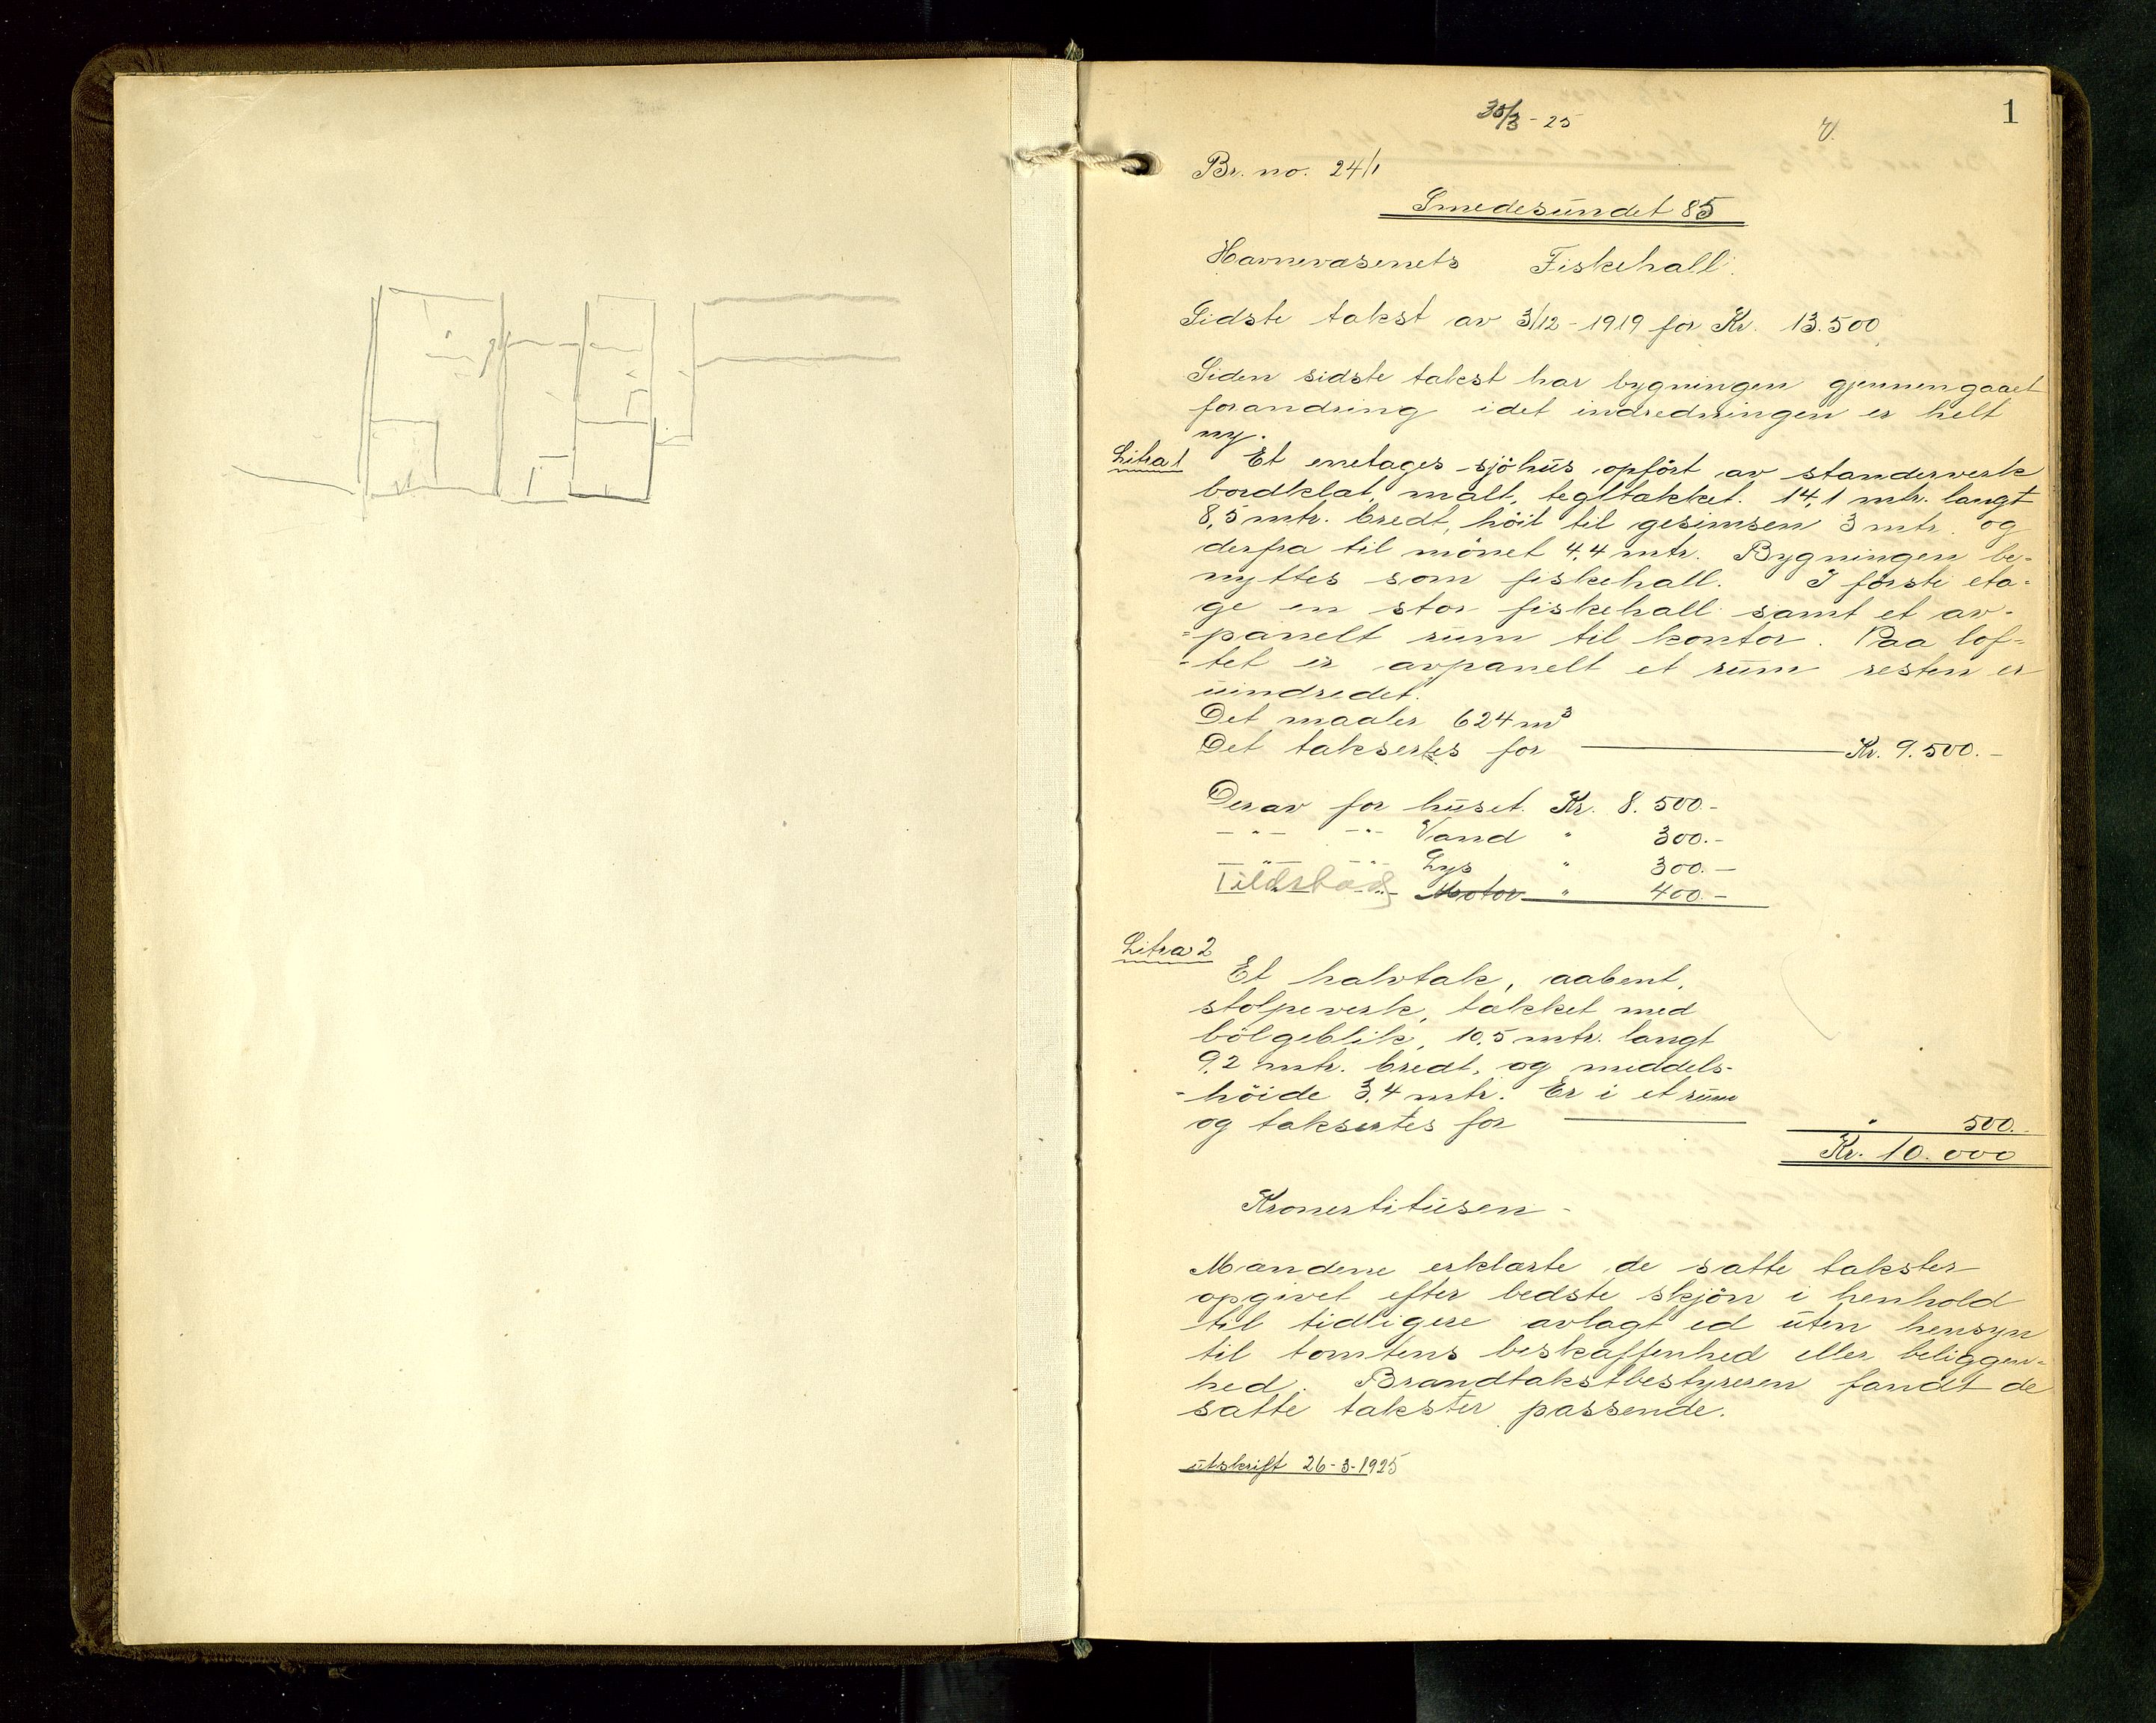 1
30/3 - 25
V.
Br. no. 24/1
Smedesundet 85
Havnevæsenets Fiskehall.
Sidste takst av 3/12 - 1919 for Kr. 13.500,
Siden sidste takst har bygningen gjennemgaaet
forandring idet indredningen er helt
ny.
Litra 1 Et enetages sjöhus opfört av standerverk
bordklæt, malt, tegltækket. 14,1 mtr. langt
8,5 mtr. bredt, höit til gesimsen 3 mtr. og
derfra til mönet 4,4 mtr. Bygningen be-
nyttes som fiskehall. I förste eta-
ge en stor fiskehall samt et av-
-panelt rum til kontor. Paa lof-
-tet er avpanelt et rum resten er
uindredet.
Det maaler 624 m³
Det taksertes for Kr. 9.500.-
Derav for huset Kr. 8.500.-
-"- -"- Vand " 300.-
-"- -"- Lys " 300.-
Ildsbad -"- Motor " 400.-
Litra 2
Et halvtak, aabent,
stolpeverk, tækket med
bölgeblik, 10,5 mtr. langt
9,2 mtr. bredt, og middels-
-höide 3,4 mtr. Er i et rum
og taksertes for " 500.-
Kr. 10.000
Kronertitusen -
Mændene erklærte de satte takster
opgivet efter bedste skjön i henhold
til tidligere avlagt ed uten hensyn
til tomtens beskaffenhed eller beliggen-
hed. Brandtakstbestyreren fandt de
satte takster passende.
utskrift 26-3-1925